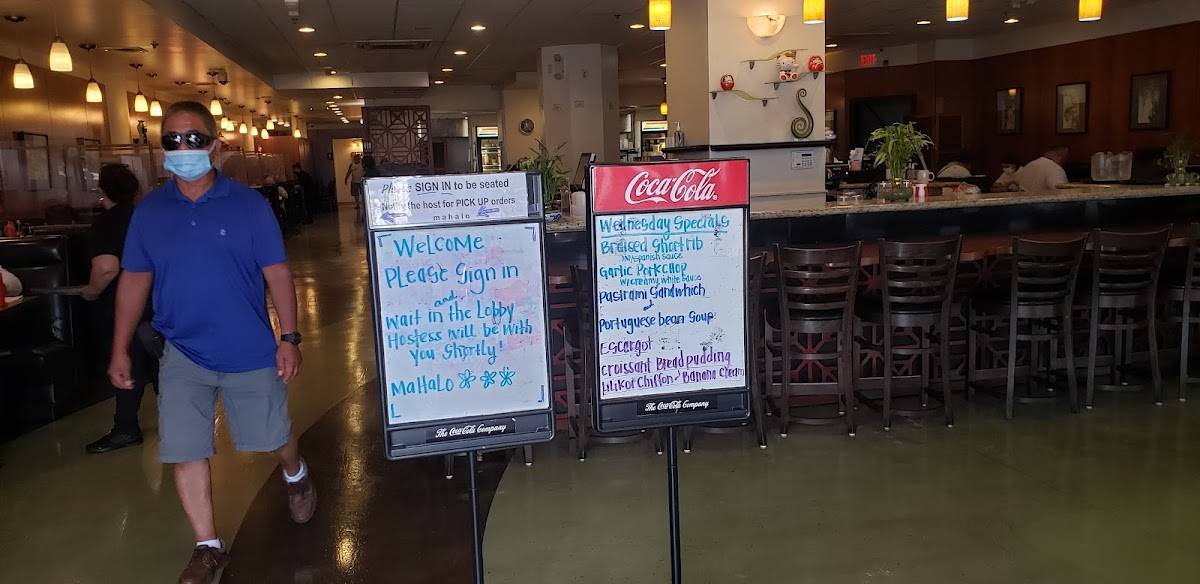 Please SIGN IN to be seated
Notify the host for PICK UP orders
mahalo
Welcome
Please Sign in
and
wait in the Lobby
Hostess will be with
you shortly!
Mahalo
The Coca-Cola Company
Coca-Cola
Wednesday Specials
Braised Short rib
w/ Spanish sauce
Garlic Porkchop
w/ creamy white sauce
Pastrami Sandwhich
Portuguese bean Soup
Escargot
Croissant Bread pudding
Lilikoi Chiffon / Banana Cream
The Coca-Cola Company
EXIT